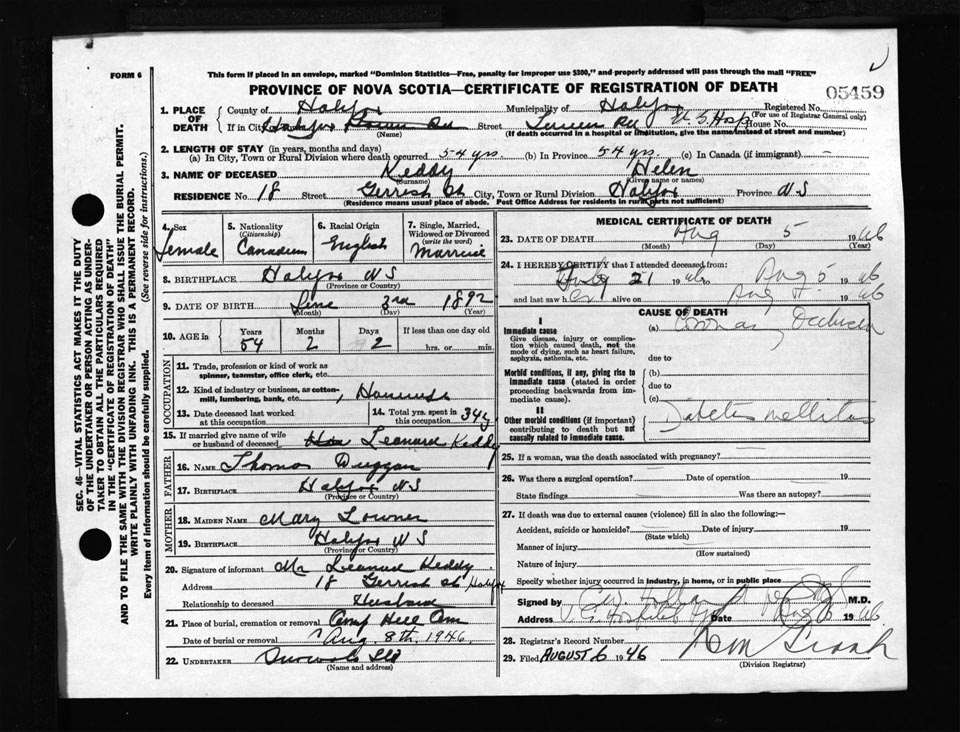 FORM 6
This form if placed in an envelope, marked "Dominion Statistics—Free, penalty for improper use $300," and properly addressed will pass through the mail "FREE"
PROVINCE OF NOVA SCOTIA—CERTIFICATE OF REGISTRATION OF DEATH
05459
1. PLACE OF DEATH
County of Halifax Municipality of Halifax Registered No.
(For use of Registrar General only)
If in City Halifax Street V. G. Hosp House No.
(Name) (If death occurred in a hospital or institution, give the name instead of street and number)
2. LENGTH OF STAY (in years, months and days)
(a) In City, Town or Rural Division where death occurred 54 yrs. (b) In Province 54 yrs. (c) In Canada (if immigrant) —
3. NAME OF DECEASED Keddy Helen
(Surname) (Given name or names)
RESIDENCE No. 18 Street Gerrish St City, Town or Rural Division Halifax Province N S
(Residence means usual place of abode. Post Office Address for residents in rural parts not sufficient)
4. Sex Female
5. Nationality (Citizenship) Canadian
6. Racial Origin English
7. Single, Married, Widowed or Divorced (write the word) Married
8. BIRTHPLACE Halifax N S
(Province or Country)
9. DATE OF BIRTH June 3rd 1892
(Month) (Day) (Year)
10. AGE in Years 54 Months 2 Days 2 If less than one day old hrs. or min.
OCCUPATION
11. Trade, profession or kind of work as spinner, teamster, office clerk, etc.
12. Kind of industry or business, as cotton-mill, lumbering, bank, etc. Housewife
13. Date deceased last worked at this occupation
14. Total yrs. spent in this occupation 34 y
15. If married give name of wife or husband of deceased Leonard Keddy
FATHER
16. NAME Thomas Duggan
17. BIRTHPLACE Halifax N S
(Province or Country)
MOTHER
18. MAIDEN NAME Mary
19. BIRTHPLACE Halifax N S
(Province or Country)
20. Signature of informant Mr Leonard Keddy
Address 18 Gerrish St Halifax
Relationship to deceased Husband
21. Place of burial, cremation or removal Camp Hill Cem
Date of burial or removal Aug. 8th. 1946
22. UNDERTAKER Snow & Co Ltd
(Name and address)
MEDICAL CERTIFICATE OF DEATH
23. DATE OF DEATH Aug 5 1946
(Month) (Day) (Year)
24. I HEREBY CERTIFY that I attended deceased from:
July 21 1946 to Aug 5 1946
and last saw her alive on Aug 1946
CAUSE OF DEATH
I
Immediate cause
Give disease, injury or complication which caused death, not the mode of dying, such as heart failure, asphyxia, asthenia, etc.
(a) Coronary Occlusion
due to
Morbid conditions, if any, giving rise to immediate cause (stated in order proceeding backwards from immediate cause).
(b)
due to
(c)
II
Other morbid conditions (if important) contributing to death but not causally related to immediate cause.
Diabetes Mellitus
25. If a woman, was the death associated with pregnancy?
26. Was there a surgical operation? Date of operation 19
State findings Was there an autopsy?
27. If death was due to external causes (violence) fill in also the following:—
Accident, suicide or homicide? Date of injury 19
(State which)
Manner of injury
(How sustained)
Nature of injury
Specify whether injury occurred in industry, in home, or in public place
Signed by M.D.
Address V. G. Hospital Date Aug 1946
28. Registrar's Record Number
29. Filed AUGUST 6 1946
(Division Registrar)
SEC. 46—VITAL STATISTICS ACT MAKES IT THE DUTY
OF THE UNDERTAKER OR PERSON ACTING AS UNDER-
TAKER TO OBTAIN ALL THE PARTICULARS REQUIRED
IN THE "CERTIFICATE OF REGISTRATION OF DEATH"
AND TO FILE THE SAME WITH THE DIVISION REGISTRAR WHO SHALL ISSUE THE BURIAL PERMIT.
WRITE PLAINLY WITH UNFADING INK. THIS IS A PERMANENT RECORD.
Every item of information should be carefully supplied. (See reverse side for instructions.)